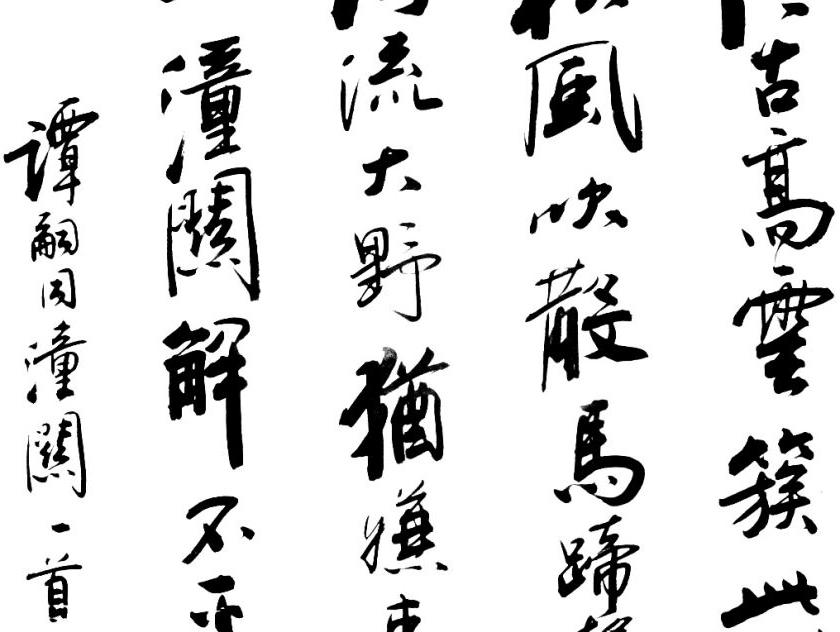 古高雲簇此
風吹散馬蹄
流大野猶嫌
潼關解不平
譚嗣同潼關一首